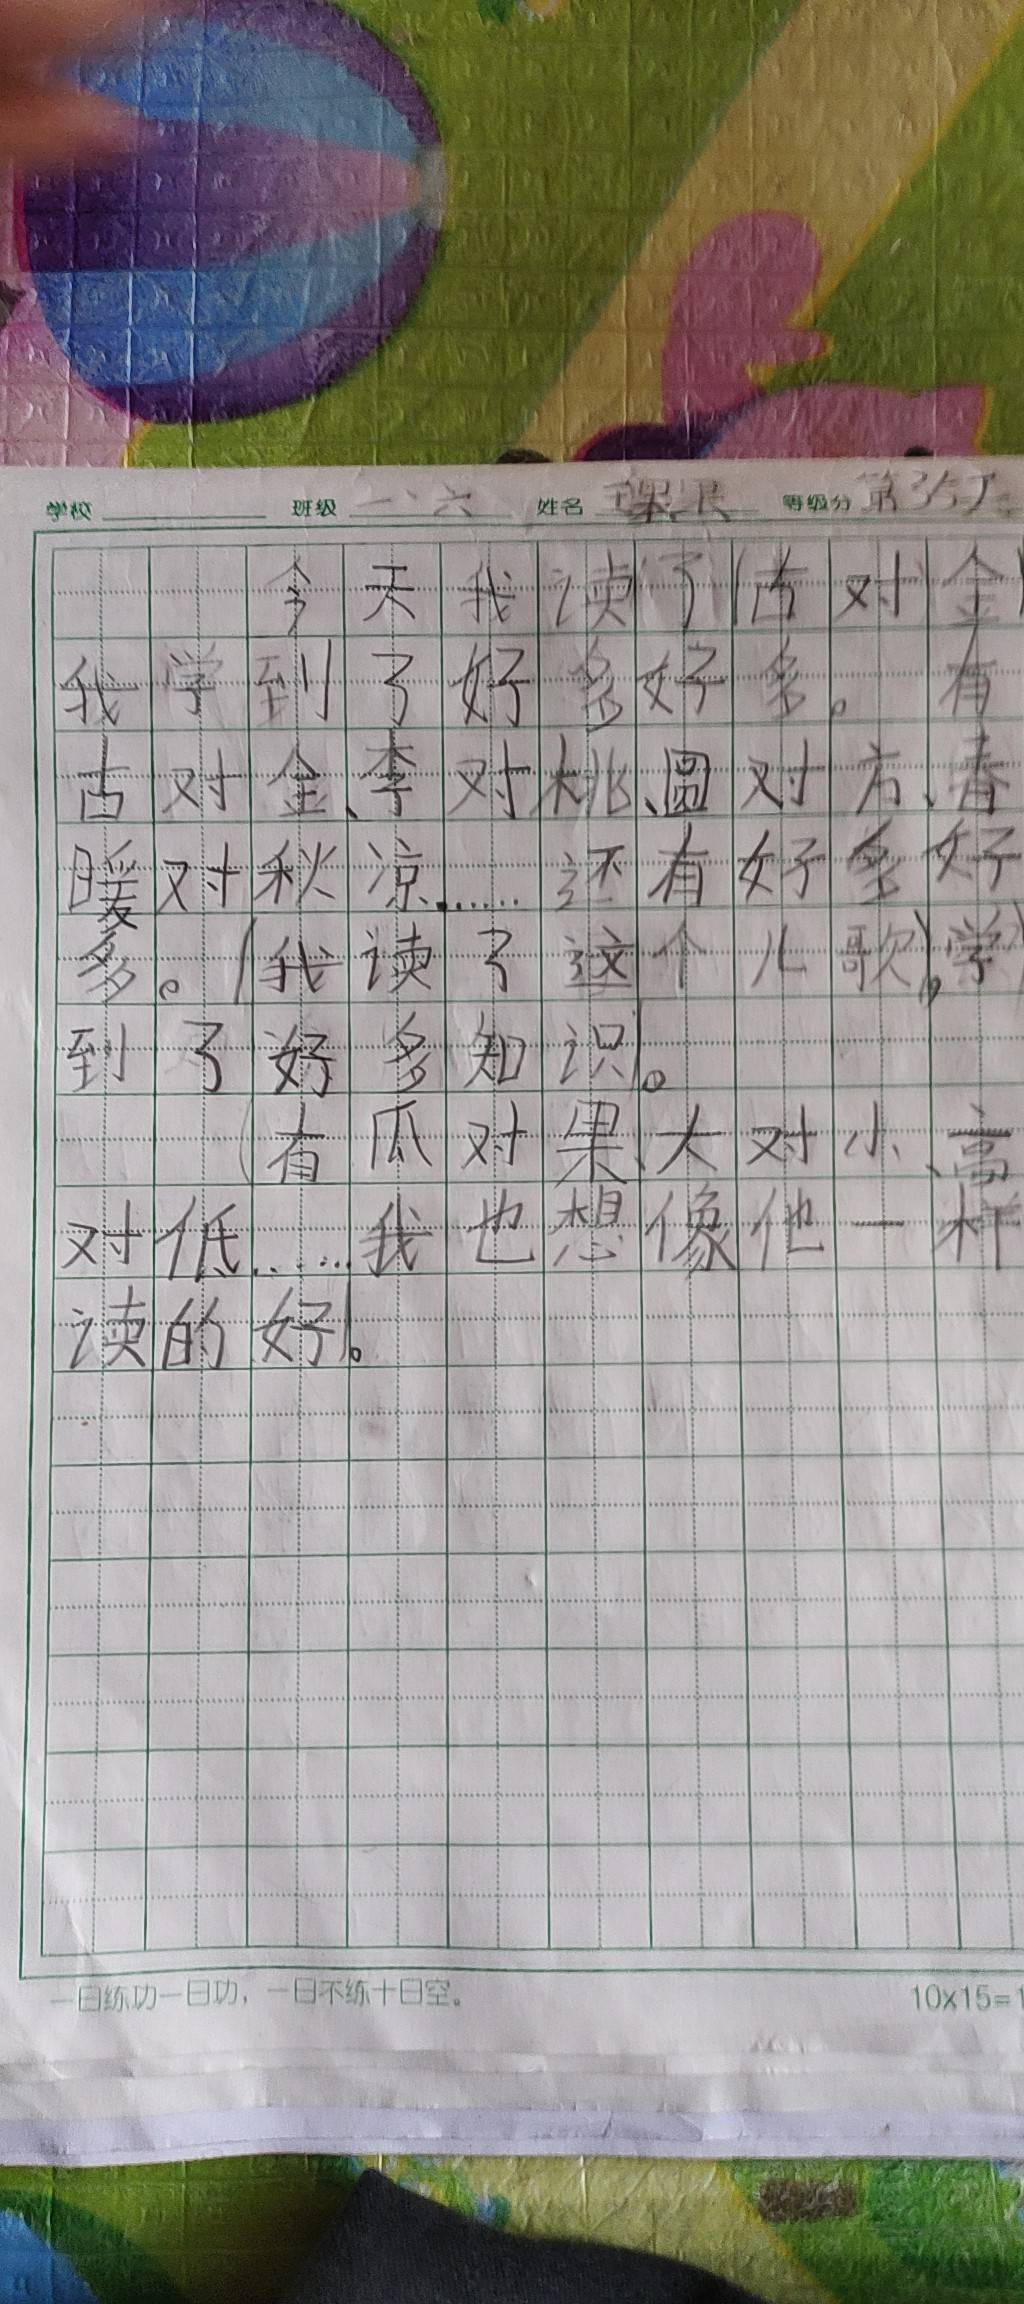 学校 班级 一、六 姓名 等级分 第35
今天我读了(古对金)
我学到了好多好多。有
古对金、李对桃、圆对方、春
暖对秋凉……还有好多好
多。(我读了这个儿歌),(学)
到了好多知识)。
(有瓜对果、大对小、高
对低……我也想像他一样
读的好)。
一日练功一日功，一日不练十日空。
10×15=1